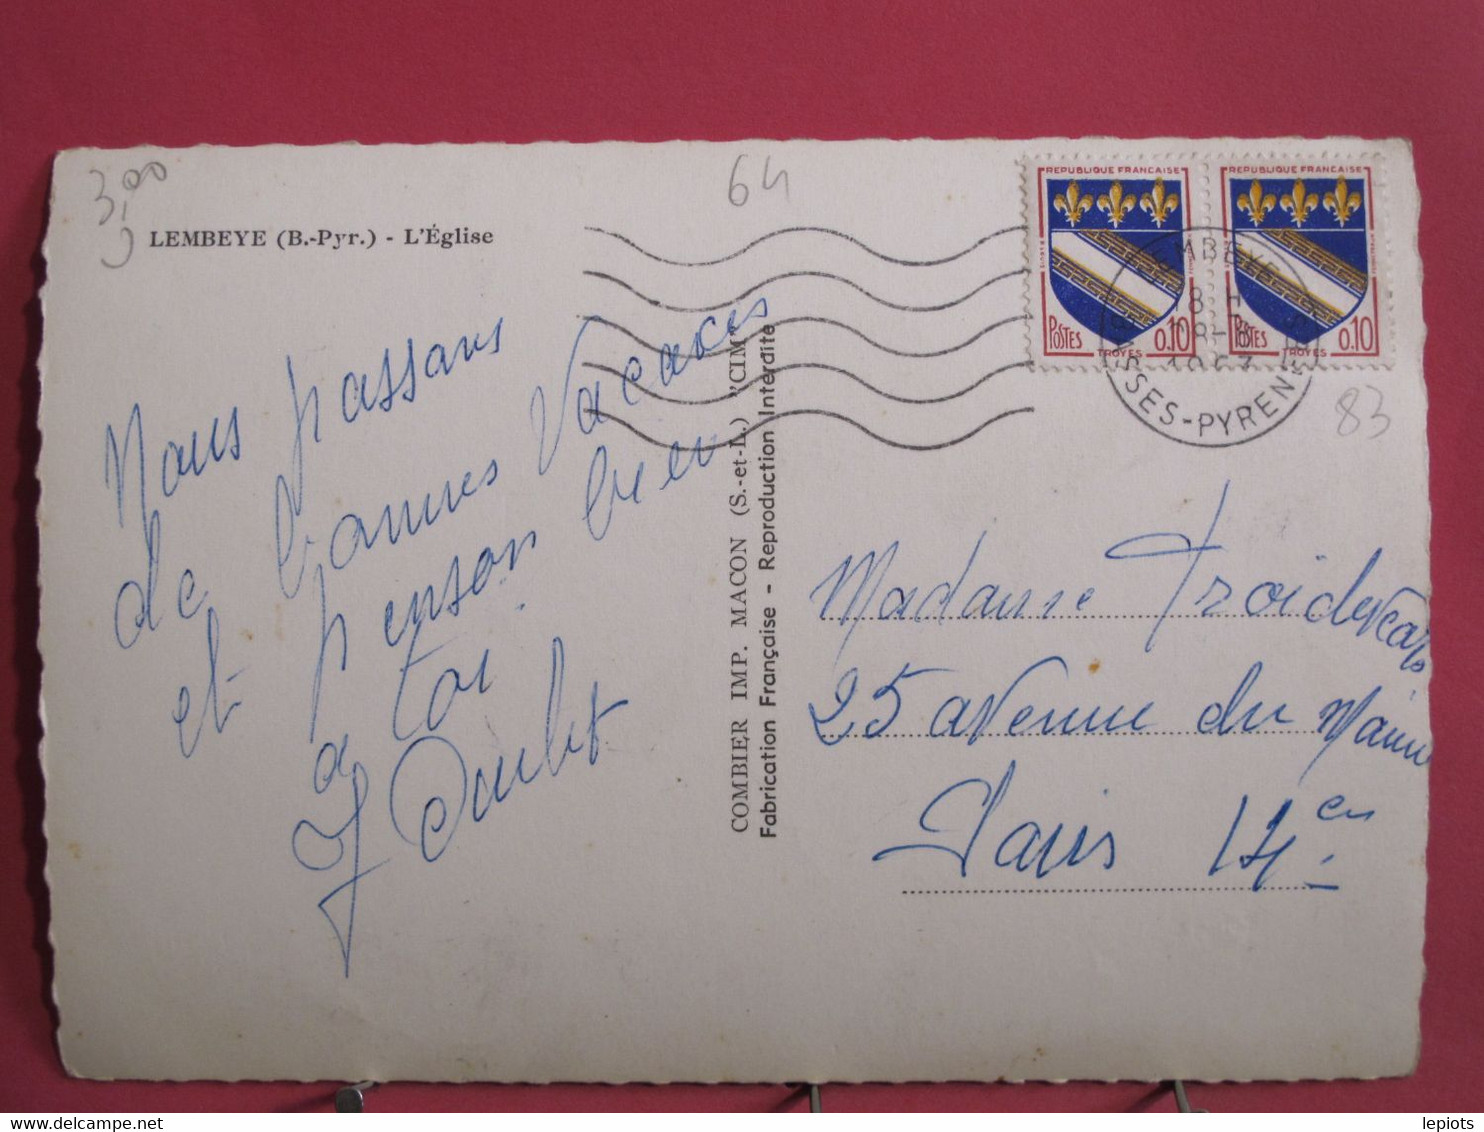 3,00
64
LEMBEYE (B.-Pyr.) - L'Église
REPUBLIQUE FRANÇAISE
POSTES 0.10
TROYES
REPUBLIQUE FRANÇAISE
POSTES 0.10
TROYES
LEMBEYE
18 H
BASSES-PYRENEES
83
Nous passons
de bonnes vacances
et penson bien
a toi
J Doulet
COMBIER IMP. MACON (S.-et-L.) "CIM"
Fabrication Française - Reproduction Interdite
Madame
25 avenue du Maine
Paris 14 en
www.delcampe.net
lepiots